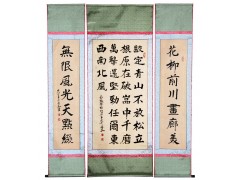 花柳前川畫廊美
咬定青山不放松立
根原在破岩中千磨
萬擊還堅勁任爾東
西南北風
無限風光天點綴